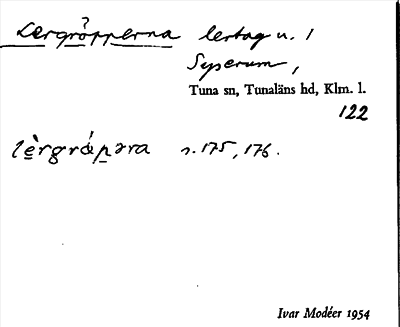 Lergröpperna lertag u. 1
Syserum,
Tuna sn, Tunaläns hd, Klm. l.
122
lèrgrápəra s. 175, 176.
Ivar Modéer 1954